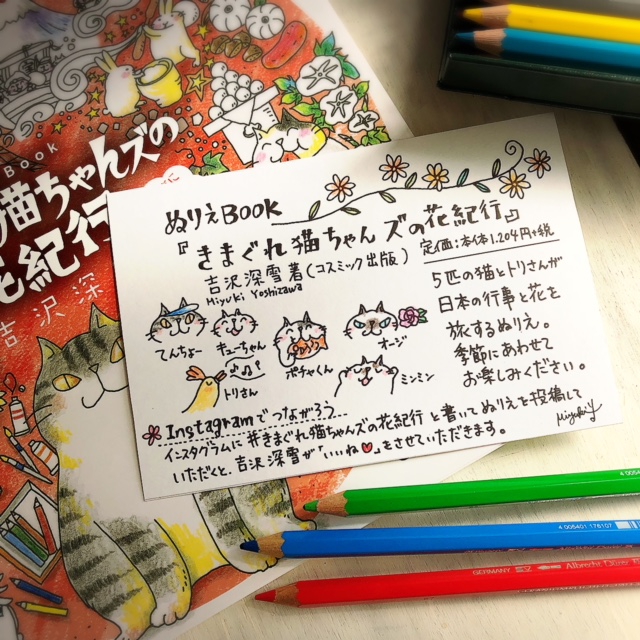 Book
猫ちゃんズの
花紀行
吉沢深
ぬりえBOOK
『きまぐれ猫ちゃんズの花紀行』
定価:本体1.204円+税
吉沢深雪著(コスミック出版)
Miyuki Yoshizawa
てんちょー
キューちゃん
ポチャくん
オージ
トリさん
ミンミン
5匹の猫とトリさんが
日本の行事と花を
旅するぬりえ。
季節にあわせて
お楽しみください。
Instagramでつながろう
インスタグラムに#きまぐれ猫ちゃんズの花紀行 と書いてぬりえを投稿して
いただくと、吉沢深雪が「いいね♥」をさせていただきます。
MiyukiY
4 005401 176107
GERMANY
Albrecht Dürer